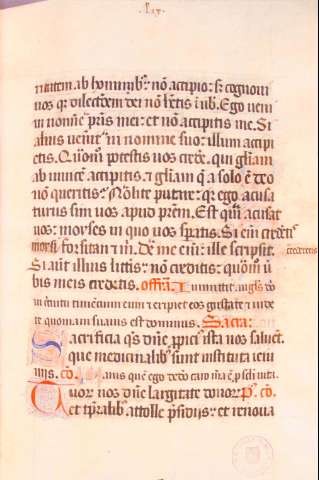 ·Lxv·
ritatem ab hominib; nō accipio: s; cognoui
uos q̄ dilectōem dei nō h̄etis ī uob̄. Ego veni
in nomine p̄ris mei: et nō accipitis me. Si
alius venit in nomine suo: illum accipi
etis. Quom̄ potestis uos cred̄e. qui gl̄iam
ab inuicē accipitis: et gl̄iam q̄ a solo ē deo
nō queritis? Nolite putare: q̄ ego accusa
turus sim uos apud p̄rem. Est qui accusat
uos: moises in quo uos sp̄atis. Si eni credetis
moisi: forsitan et m̄. De me eni ille scripsit.
crederetis
Si aut̄ illius litt̄is nō creditis: quom̄ ū
bis meis credetis. offr̄a. Inmittit angl̄s do
in circuitu timencium eum et eripiet eos gustate et uide
te quoniam suauis est dominus. Sacra:
Sacrificia q̄s dn̄e p̄picius ista nos saluēt.
que medicinalib; sunt instituta ieiu
niis. cō. Panis quē ego dedero caro mea ē p̄ scl̄i uita.
Tuor nos dn̄e largitate donor; p. cō.
et tp̄ralib; attolle p̄sidiis: et renoua